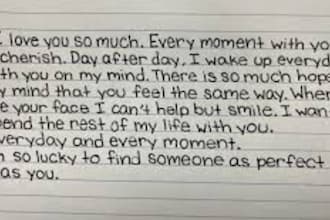 I love you so much. Every moment with yo
cherish. Day after day, I wake up everyd
th you on my mind. There is so much hop
y mind that you feel the same way. When
e your face I can't help but smile. I wan
end the rest of my life with you.
veryday and every moment.
so lucky to find someone as perfect
as you.